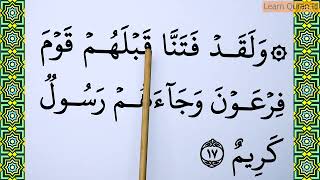 Learn Quran id
۞ وَلَقَدۡ فَتَنَّا قَبۡلَهُمۡ قَوۡمَ
فِرۡعَوۡنَ وَجَآءَهُمۡ رَسُولٞ
كَرِيمٌ ١٧